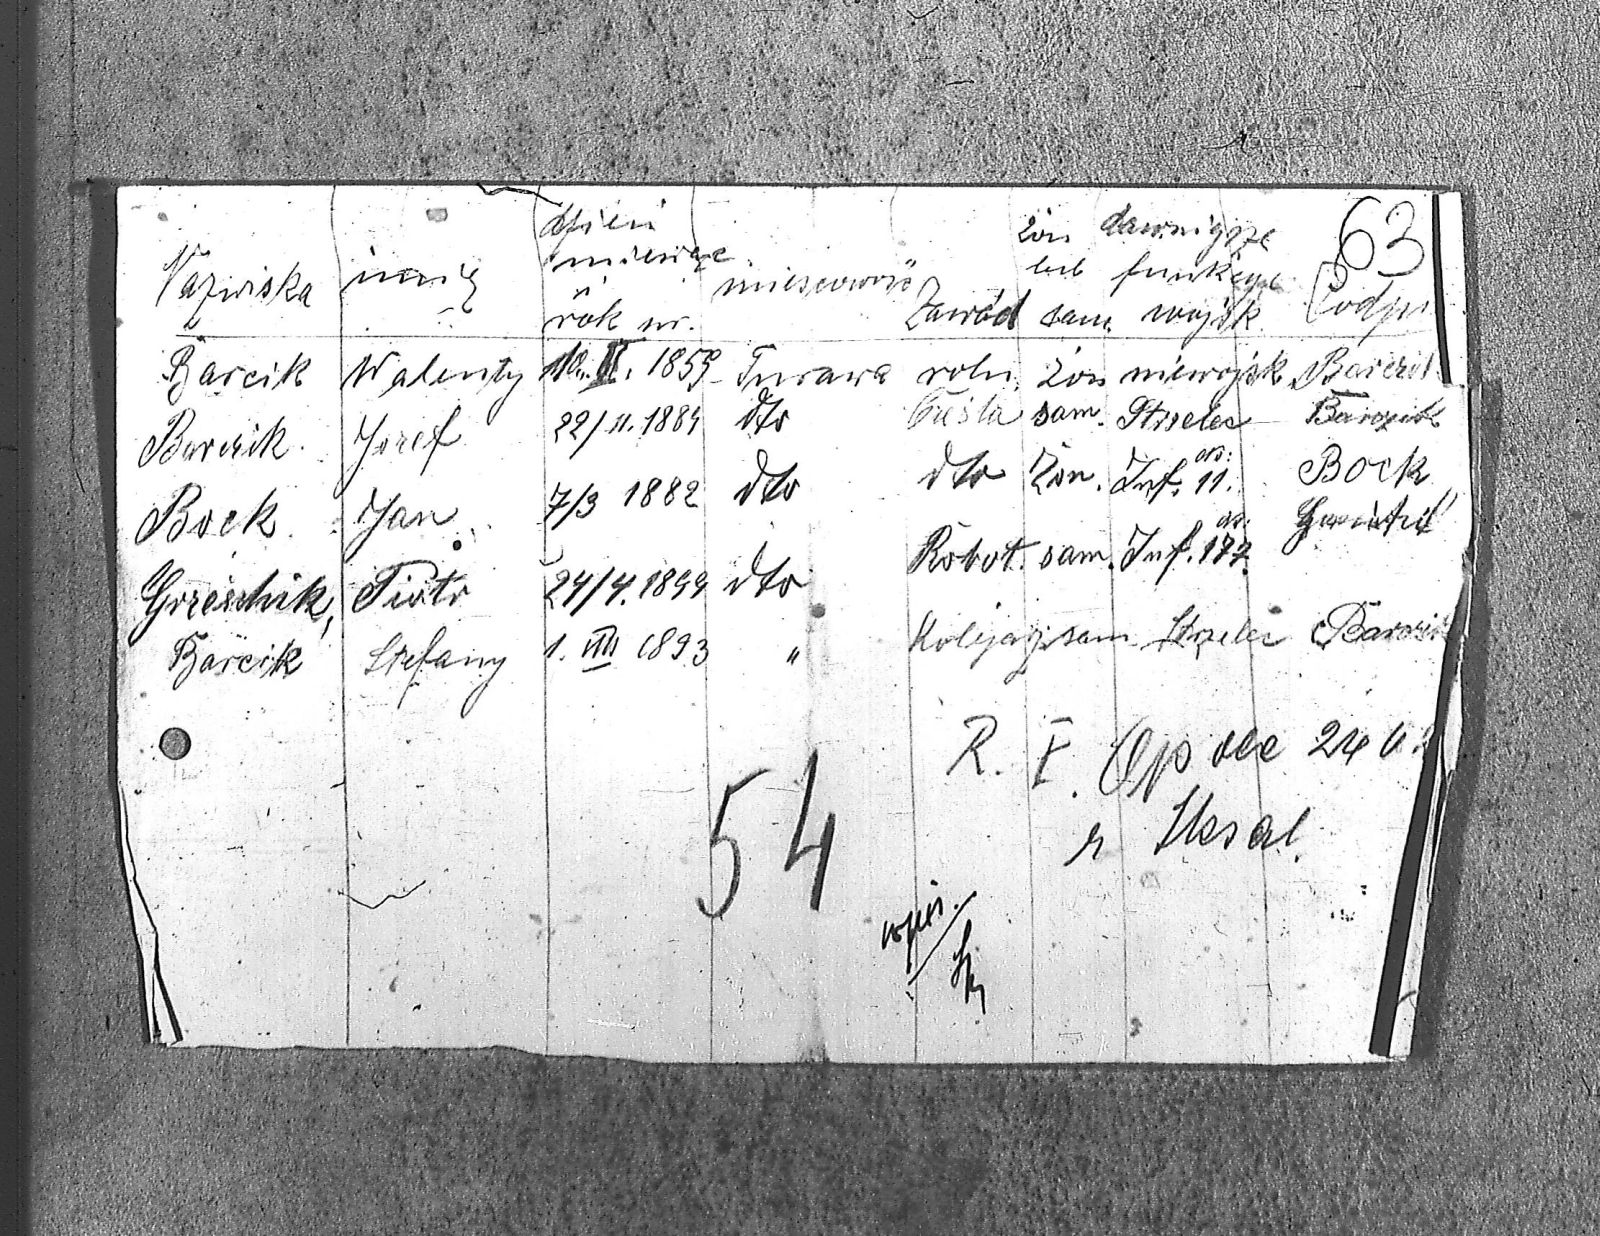 63
Nazwiska imię dzień miesiąc rok ur. miescowość Zawód żon lub sam. dawnigsze funkcye wojsk. Podpis
Barcik Walenty 1859 Turawa roln. żon niewojsk. Barcik
Barcik Jozef 22/11.1884 dto Cieśla sam. Strzelec Barczik
Bock Jan 7/3 1882 dto dto Żon. Inf. 11. Bock
Grzeschik, Piotr 24/4.1899 dto Robot. sam. Inf.
Barcik Stefany 1. VIII 1893 " Kolejarz sam Strzelec Barczik
R. I. Opole
54